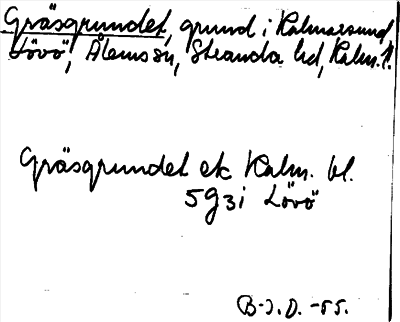 Gräsgrundet, grund i Kalmarsund
Lövö, Ålems sn, Stranda hd, Kalm. l.
Gräsgrundet ek Kalm. bl.
5g3i Lövö
B-J.D. -55.